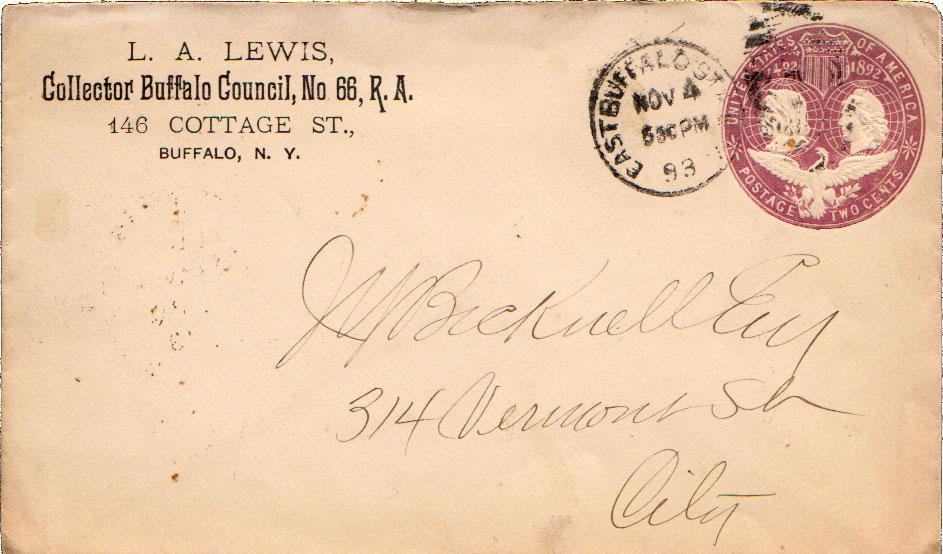 L. A. LEWIS,
Collector Buffalo Council, No. 66, R. A.
146 COTTAGE ST.,
BUFFALO, N. Y.
EAST BUFFALO STA
NOV 4
530PM
93
UNITED STATES OF AMERICA
1492 1892
POSTAGE TWO CENTS
Bicknell Esq
314 Vermont St
City